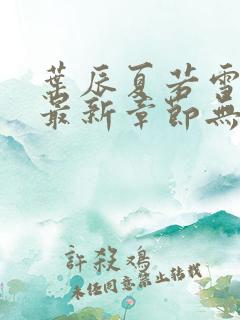 葉辰夏若雪
最新章節無
許殺鴻
未經同意禁止轉載